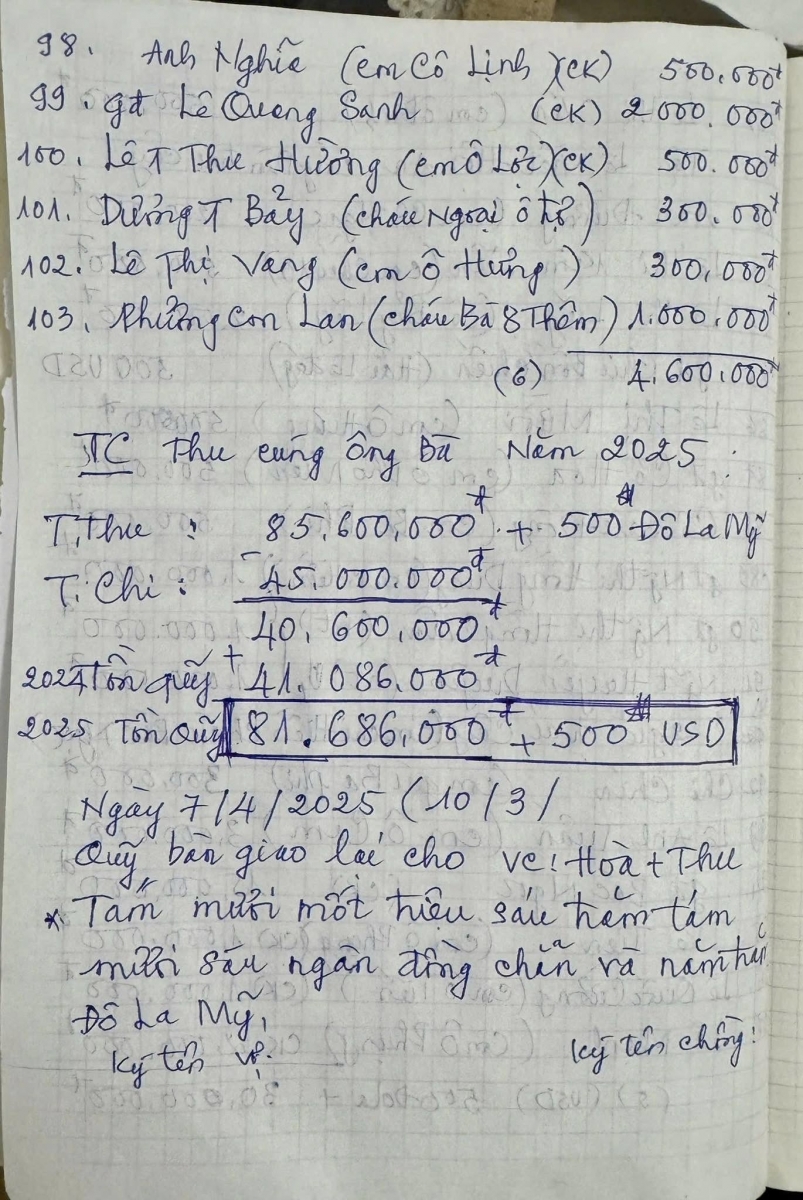 98. Anh Nghĩa (em Cô Lịnh)(CK) 500.000đ
99. gđ Lê Quang Sanh (CK) 2000.000đ
100. Lê T Thu Hường (em Ô Lộc)(CK) 500.000đ
101. Dương T Bảy (cháu Ngoại ô Lộ) 300.000đ
102. Lê Thị Vang (em Ô Hưng) 300.000đ
103. Phương con Lan (cháu Bà 8 Thêm) 1.000.000đ
(6) 4.600.000đ
TC Thu cúng Ông Bà Năm 2025:
T.Thu: 85.600.000đ + 500 Đô La Mỹ
T. Chi: - 45.000.000đ
40.600.000đ
2024 Tồn quỹ + 41.086.000đ
2025 Tồn Quỹ 81.686.000đ + 500 USD
Ngày 7/4/2025 (10/3/
Quỹ bàn giao lại cho vc: Hoà + Thu
* Tám mươi mốt triệu sáu trăm tám
mươi sáu ngàn đồng chẵn và năm trăm
Đô La Mỹ,
Ký tên vợ: Ký tên chồng: